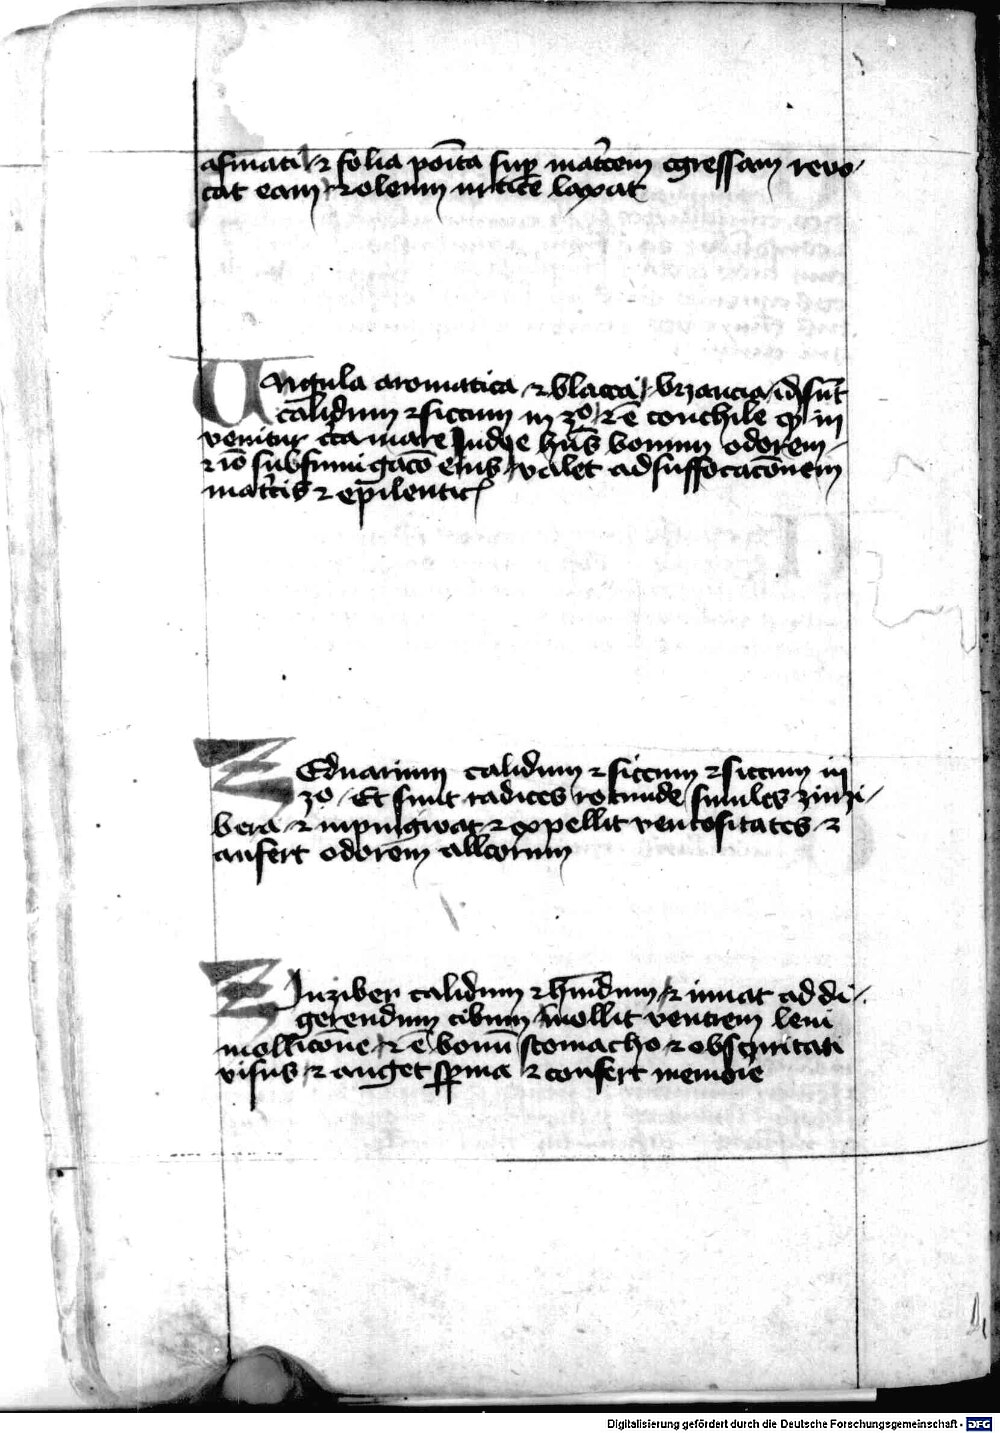 asmati ⁊ folia po̅ita sup̱ mat̾cem egressam revo-
cat eam ⁊ oleum urtice̅ laxat
Ungula aromatica ⁊ blacca brzancia id su̅t
calidum ⁊ siccum in 3º ⁊ e̅ conchile q̱ in
venitur c̾ca mare Indye h̅ns bonum odorem
⁊ io̅ subfumigac̅o eius valet ad suffocac̅onem
mat̾cis ⁊ epilentic̾
Zeduarium calidum ⁊ siccum ⁊ siccum in
3º Et sunt radices rotunde similes zinzi-
bera ⁊ inpingwat ⁊ expellit ventositates ⁊
aufert odorem alleorum
Zinziber calidum ⁊ hu̅idum ⁊ iuuat ad di-
gerendum cibum mollit ventrem leni
mollico̅ne ⁊ e̅ bonu̅ stomacho ⁊ obscuritati
visus ⁊ auget sp̱ma ⁊ confert memorie
Digitalisierung gefördert durch die Deutsche Forschungsgemeinschaft - DFG